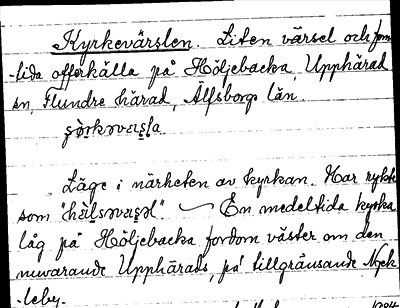 Kyrkevärslen. Liten värsel och forn
-tida offerkälla på Höljebacka, Upphärad
sn, Flundre härad, Älfsborgs län.
Läge i närheten av kyrkan. Har rykte
som "
". — En medeltida kyrka
låg på Höljebacka fordom väster om den
nuvarande Upphärads, på tillgränsande Nyck
-leby.